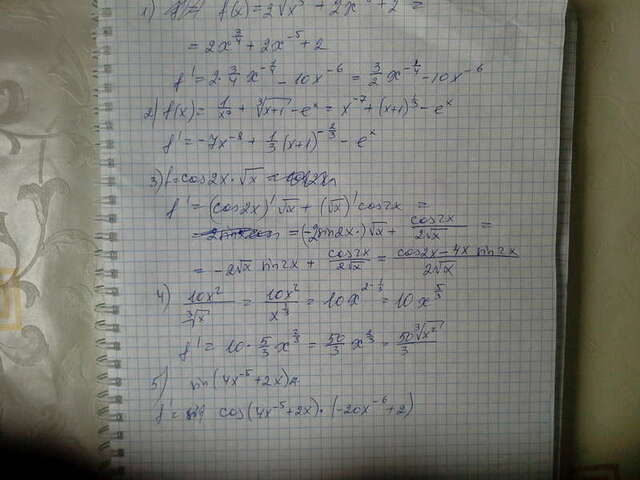 1) f(x) = 2∜x³ + 2x⁻⁵ + 2 =
= 2x^(3/4) + 2x⁻⁵ + 2
f' = 2·3/4 x^(-1/4) - 10x⁻⁶ = 3/2 x^(-1/4) - 10x⁻⁶
2) f(x) = 1/x⁷ + ∛(x+1) - eˣ = x⁻⁷ + (x+1)^(1/3) - eˣ
f' = -7x⁻⁸ + 1/3 (x+1)^(-2/3) - eˣ
3) f = cos2x · √x =
f' = (cos2x)' √x + (√x)' cos2x =
= (-2sin2x·)√x + cos2x/(2√x) =
= -2√x sin2x + cos2x/(2√x) = (cos2x - 4x sin2x)/(2√x)
4) 10x²/∛x = 10x²/x^(1/3) = 10x^(2-1/3) = 10x^(5/3)
f' = 10·5/3 x^(2/3) = 50/3 x^(2/3) = 50∛x²/3
5) sin(4x⁻⁵+2x)
f' = cos(4x⁻⁵+2x)·(-20x⁻⁶+2)